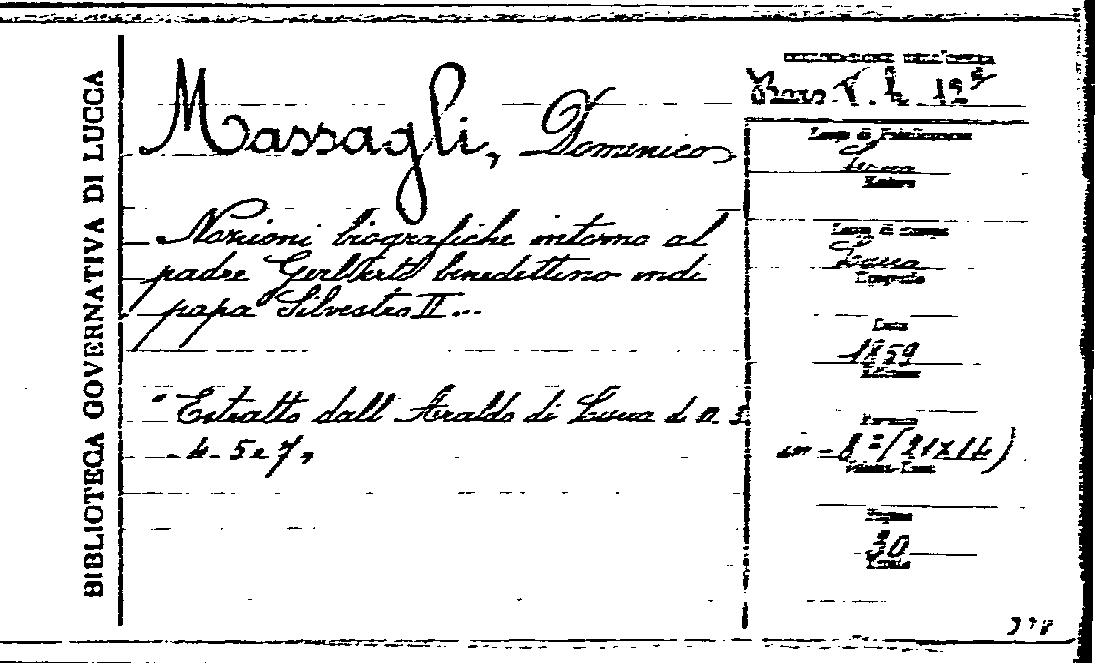 BIBLIOTECA GOVERNATIVA DI LUCCA
Massagli, Domenico
Nozioni biografiche intorno al
padre Gerberto benedettino indi
papa Silvestro II ...
"Estratto dall Araldo di Lucca d. n. 3
- 4 - 5 e 7 "
Luogo di Pubblicazione
Lucca
Editore
Luogo di stampa
Lucca
Tipografo
Data
1859
Edizione
Formato
in - 8º (21x14)
Pagine
30